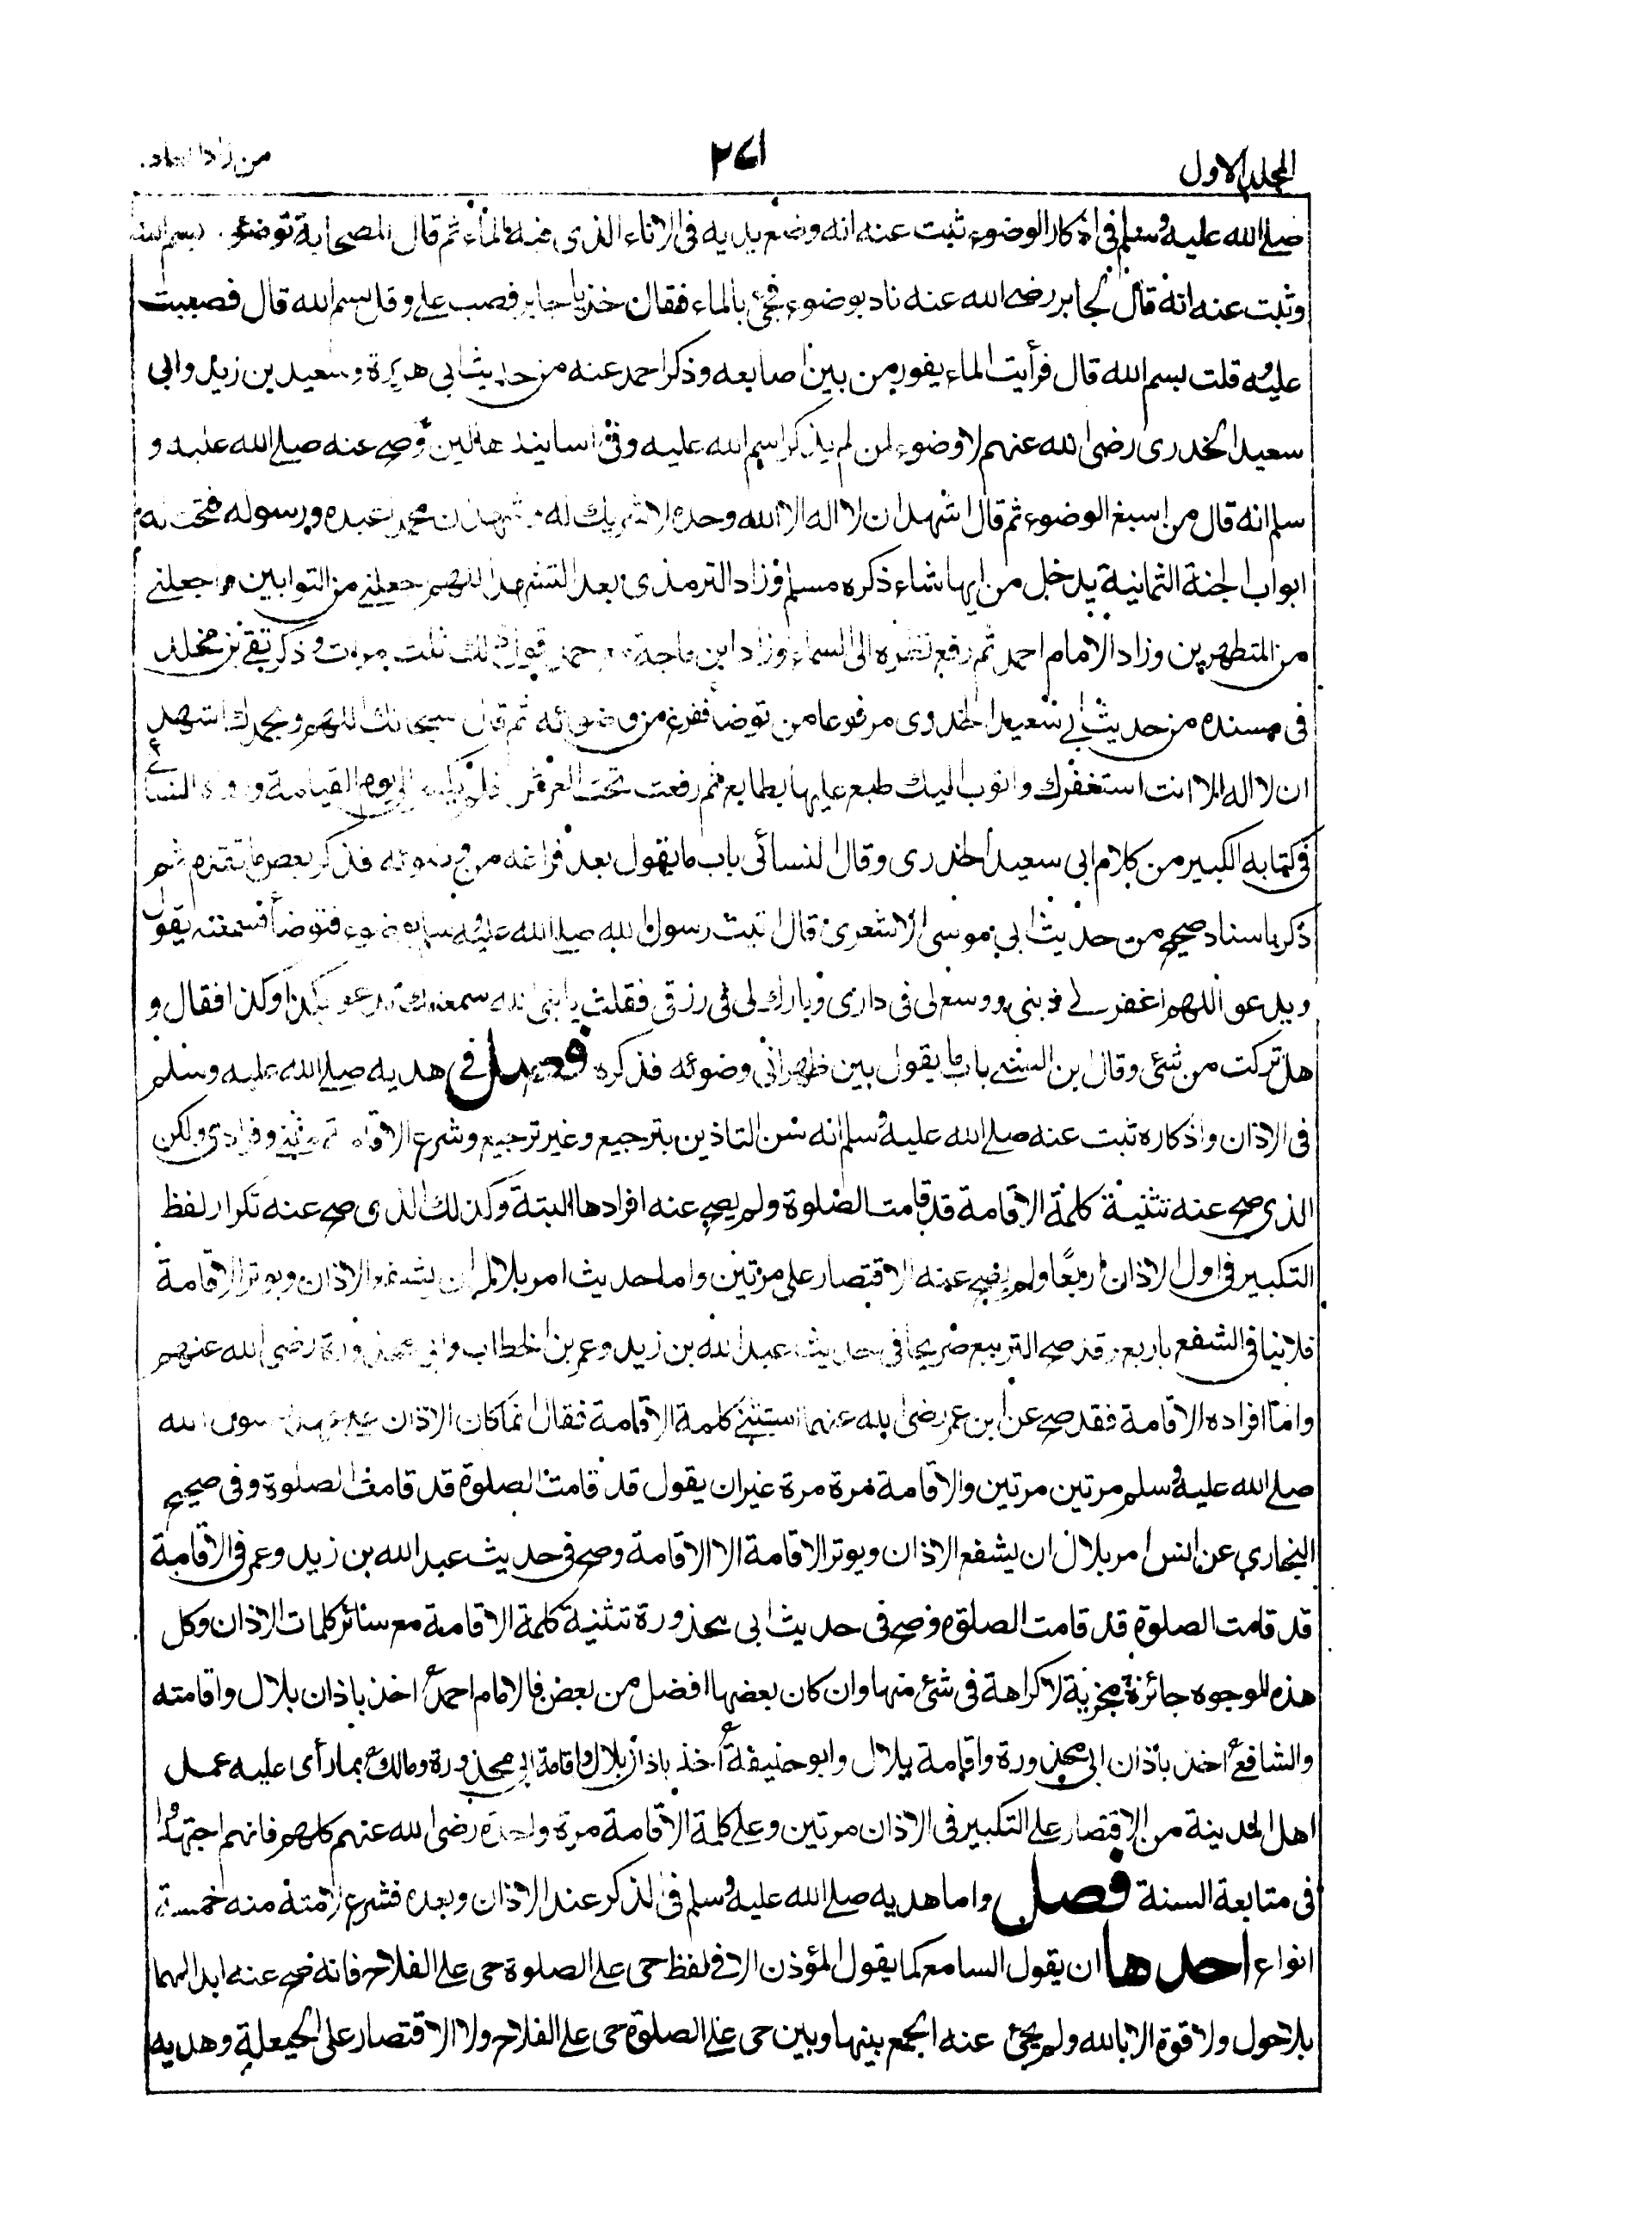 المجلد الاول
٢٧١
من زاد المعاد
صلے الله عليه وسلم فى اذكار الوضوء ثبت عنه انه وضع يديه فى الاناء الذى فيه الماء ثم قال للصحابة توضؤ بسم الله
وثبت عنه انه قال لجابر رضے الله عنه ناد بوضوء فجئ بالماء فقال خذ يا جابر فصب علے وقل بسم الله قال فصببت
عليه وقلت بسم الله قال فرأيت الماء يفور من بين اصابعه وذكر احمد عنه من حديث ابى هريرة وسعيد بن زيد وابى
سعيد الخدرى رضى الله عنهم لا وضوء لمن لم يذكر اسم الله عليه وفى اسانيدها لين وصح عنه صلے الله عليه و
سلم انه قال من اسبغ الوضوء ثم قال اشهد ان لا اله الا الله وحده لا شريك له واشهد ان محمدا عبده ورسوله فتحت له
ابواب الجنة الثمانية يدخل من ايها شاء ذكره مسلم وزاد الترمذى بعد التشهد اللهم اجعلنے من التوابين واجعلنے
من المتطهرين وزاد الامام احمد ثم رفع نظره الى السماء وزاد ابن ماجة مع احمد قول ذلك ثلث مرات وذكر بقے بن مخلد
فى مسنده من حديث ابے سعيد الخدرى مرفوعا من توضأ ففرغ من وضوئه ثم قال سبحانك اللهم وبحمدك اشهد
ان لا اله الا انت استغفرك واتوب اليك طبع عليها بطابع ثم رفعت تحت العرش فلم يكسر الى يوم القيامة ورواه النسائے
فى كتابه الكبير من كلام ابى سعيد الخدرى وقال النسائى باب ما يقول بعد فراغه من وضوئه فذكر بعض ما تقدم ثم
ذكر باسناد صحيح من حديث ابى موسى الاشعرى قال اتيت رسول الله صلے الله عليه وسلم بوضوء فتوضأ فسمعته يقول
ويدعو اللهم اغفر لے ذنبى ووسع لى فى دارى وبارك لى فى رزقى فقلت يا نبى الله سمعتك تدعو بكذا وكذا فقال و
هل تركت من شئ وقال ابن السنے باب ما يقول بين ظهرانى وضوئه فذكره فصل فى هديه صلے الله عليه وسلم
فى الاذان واذكاره ثبت عنه صلے الله عليه وسلم انه سن التاذين بترجيع وغير ترجيع وشرع الاقامة مثنے وفرادى ولكن
الذى صح عنه تثنية كلمة الاقامة قد قامت الصلوة ولم يصح عنه افرادها البتة وكذلك الذى صح عنه تكرار لفظ
التكبير فى اول الاذان اربعًا ولم يصح عنه الاقتصار على مرتين واما حديث امر بلال ان يشفع الاذان ويوتر الاقامة
فلا ينافى الشفع باربع وقد صح التربيع صريحا فى حديث عبد الله بن زيد وعمر بن الخطاب وابى محذورة رضى الله عنهم
واما افراده الاقامة فقد صح عن ابن عمر رضى الله عنهما استثنے كلمة الاقامة فقال انما كان الاذان على عهد رسول الله
صلے الله عليه وسلم مرتين مرتين والاقامة مرة مرة غير ان يقول قد قامت الصلوة قد قامت الصلوة وفى صحيح
البخارى عن انس امر بلال ان يشفع الاذان ويوتر الاقامة الا الاقامة وصح فى حديث عبد الله بن زيد وعمر فى الاقامة
قد قامت الصلوة قد قامت الصلوة وصح فى حديث ابى محذورة تثنية كلمة الاقامة مع سائر كلمات الاذان وكل
هذه الوجوه جائزة مجزية لا كراهة فى شئ منها وان كان بعضها افضل من بعض فالامام احمد اخذ باذان بلال واقامته
والشافعے اخذ باذان ابى محذورة واقامة بلال وابو حنيفة اخذ باذان بلال واقامة ابى محذورة ومالك بما رأى عليه عمل
اهل المدينة من الاقتصار على التكبير فى الاذان مرتين وعلے كلمة الاقامة مرة واحدة رضى الله عنهم كلهم فانهم اجتهدوا
فى متابعة السنة فصل واما هديه صلے الله عليه وسلم فى الذكر عند الاذان وبعده فشرع لامته منه خمسة
انواع احدها ان يقول السامع كما يقول المؤذن الا فے لفظ حى علے الصلوة حى على الفلاح فانه صح عنه ابدالهما
بلا حول ولا قوة الا بالله ولم يجئ عنه الجمع بينها وبين حى علے الصلوة حى علے الفلاح ولا الاقتصار على الحيعلة وهديه